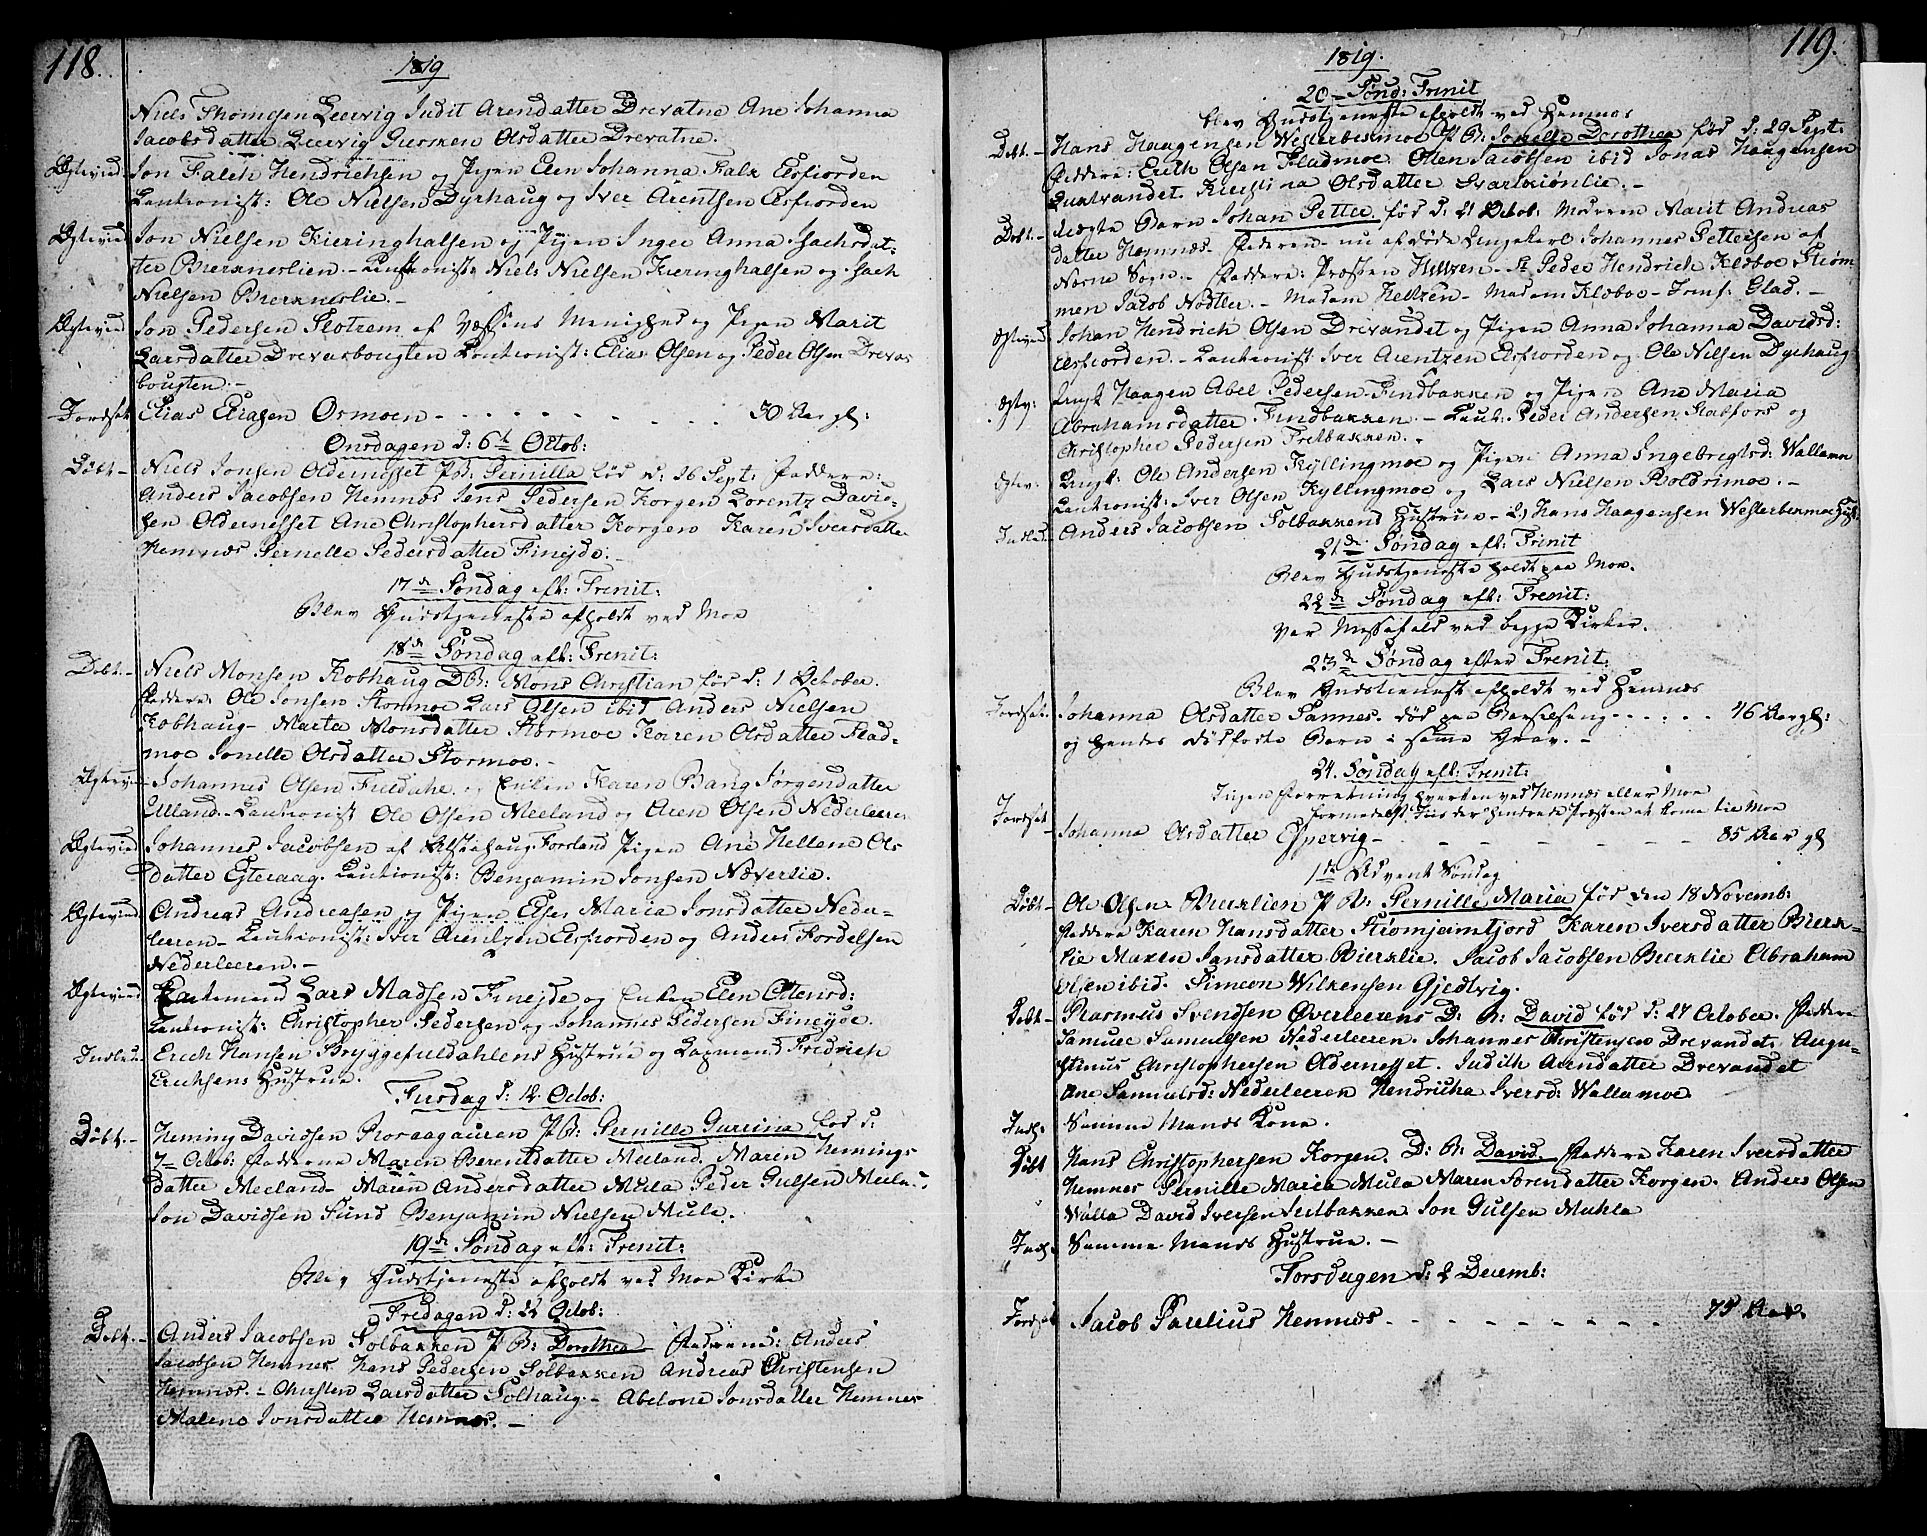 118.
1819
Niels Thomesen Leervig Judit Arendatter Drevatne Ane Johanna
Jacobsdatter Leervig Gurmen Olsdatter Drevatne.
Ægtevied Jon Falch Hendrichsen og Pigen Elen Johanna Falk Elsfiorden
Cautionist: Ole Nielsen Dyrhaug og Iver Arentsen Elsfiorden
Ægtevied Jon Nielsen Kieringhalsen og Pigen Inger Anna Isachsdat-
ter Bierknerlien. - Cautionist: Niels Nielsen Kieringhalsen og Isach
Nielsen Bierknerlie. -
Ægtevied Jon Pedersen Slotrem af Vefsens Menighed og Pigen Marit
Larsdatter Drevasbougten Cautionist: Elias Olsen og Peder Olsen Drevas
bougten. -
Jordfæst Elias Eliasen Ormoen - - - - 50 Aar gl:
Onsdagen d: 6te Octob:
Døbt - Niels Jonsen Oldernesset P.B: Pernilla fød d: 26 Sept: Faddere:
Anders Jacobsen Hemnes Jens Pedersen Korgen Lorentz David-
sen Oldernesset Ane Christophersdatter Korgen Karen Iversdatter
Hemnæs Pernelle Pedersdatter Fineyde. -
17de Søndag eft: Trenit:
Blev Gudstjeneste afholdt ved Moe
18de Søndag eft: Trenit:
Døbt. - Niels Monsen Kobhaug D B: Mons Christian fød d: 1 October.
Faddere Ole Jonsen Stormoe Lars Olsen ibid Anders Nielsen
Kobhaug - Marta Monsdatter Stormoe Karen Olsdatter Flad-
moe Jonelle Olsdatter Stormoe. -
Ægtevied Johannes Olsen Fieldahl og Enken Karen Bang Jørgendatter
Ulland. - Cautionist Ole Olsen Meeland og Aren Olsen Nederleeren
Ægtevied Johannes Jacobsen af Alstahaug Forsland Pigen Ane Hellene Ols
datter Ytteraag. Cautionist: Benjamin Jonsen Næverlie.
Ægtevied Andreas Andreasen og Pigen Elses Maria Jonsdatter Neder-
leeren - Cautionist: Iver Arentzen Elsfiorden og Anders Fordelsen
Nederleeren. -
Ægtevied Enkemand Lars Madsen Fineyde og Enken Elen Ottensd:
Cautionist: Christopher Pedersen og Johannes Pedersen Fineyde.
Indled: Erich Hansen Bryggefieldahlens Hustrue og Lagmand Fredrich
Erichsens Hustrue.
Tirsdag d: 12 Octob:
Døbt. - Heming Davidsen Roraagauren P.B: Pernille Gureina fød d:
7de Octob: Fadderne Maren Berentdatter Meeland. Maren Hemings-
datter Meeland - Maren Andersdatter Mula Peder Gulsen Mula.
Jon Davidsen Sund Benjamin Nielsen Mula.
19de Søndag eft: Trenit:
Blev Gudstjeneste afholdt ved Moe Kirke
Fredagen d: 22 Octob:
Døbt. - Anders Jacobsen Solbakken P B: Dorothea Fadderne: Anders
Jacobsen Hemnes Hans Pedersen Solbakken Andreas Christensen
Hemnæs. - Chirsten Larsdatter Solhaug - Abelone Jonsdatter Hemnes
Malene Jonsdatter Hemnes. -
119.
1819.
20 - Sønd: Trenit
blev Gudstjeneste afholdt ved Hemnæs
Døbt. - Hans Haagensen Westerbesmoe P B: Jonelle Dorothea fød d: 29 Sept:
Faddere: Erith Olsen Fladmoe. Otten Jacobsen ibid Jonas Haagensen
Luktvandet. Kierstina Olsdatter Svartkiønlie. -
Døbt. - Uægte Barn Johan Petter fød d: 21 Octob: Moderen Marit Andreas
datter Hemnæs - Faderen - nu afdøde Ungekarl Johannes Pettersen af
Nærne Sogn. - Faddere: Præsten Heltzen - Sr Peder Hendrich Kloboe Strøm
men Jacob Nødtler. - Madam Heltzen - Madam Kloboe - Jomf: Glad. -
Ægtevied Johan Hendrich Olsen Drevandet og Pigen Anna Johanna Davidsd:
Elsfiorden. - Cautionist Iver Arentzen Elsfiorden og Ole Nielsen Dyrhaug
Ægtv: Ungk Haagen Abel Pedersen Findbakken og Pigen Ane Maria
Abrahamsdatter Findbakken. - Caut: Peder Andersen Stalfors og
Christopher Pedersen Fretbakken. -
Ægtev: Ungk: Ole Andersen Kyllingmoe og Pigen Anna Ingebregtsd: Wallamoe
Cautionist: Iver Olsen Kyllingmoe og Lars Nielsen Boldrimoe. -
Indled. Anders Jacobsen Solbakkens Hustrue - 2) Hans Haagensen Westerbesmoe Hust:
21de Søndag eft: Trenit
Blev Gudstjeneste holdt paa Moe.
22de Søndag eft: Trenit:
Var Messefald ved begge Kirker.
23de Søndag efter Trenit:
Blev Gudstienest afholdt ved Hemnæs
Jordfæst. Johanna Olsdatter Sannes. død paa Barselseng - - - - 46 Aar gl:
og hendes dødfødte Barn i samme Grav. -
24. Søndag eft: Trenit:
Ingen Forretning hverken ved Hemnæs eller Moe
formedelst Iis der hindrede Præsten at komme til Moe
Jordfæst Johanna Olsdatter Espervig - - - - - 85 Aar gl
1ste Advent Søndag
Døbt - Ole Olsen Bierklien P B: Pernille Maria fød den 18 Novemb:
Faddere Karen Hansdatter Strømjeimtjord Karen Iversdatter Bierk-
lie Maren Jansdatter Bierklie. Jacob Jacobsen Bierklie Abraham
Olsen ibid. Simeon Wilkensen Gjedtvig.
Døbt - Rasmus Svendsen Øverleerens D: B: David fød d: 27 October. Faddere
Samuel Samulsen Nederleeren. Johannes Christensen Drevandet. Augu-
stinus Christophersen Oldernesset. Judith Arndatter Drevandet
Ane Samuelsd: Nederleeren Hendricha Iversd: Wallamoe
Indl. Samme Mands Kone.
Døbt Hans Christophersen Korgen. D: B: David. Faddere Karen Iversdatter
Hemnes Pernille Maria Mula Maren Sørendatter Korgen. Anders Olsen
Walla David Iversen Luthbakken Jon Gulsen Muhla
Indl. Samme Mands Hustrue. -
Torsdagen d: 2 Decemb:
Jordfæst Jacob Parelius Hemnæs - - - - - - 75 Aar.